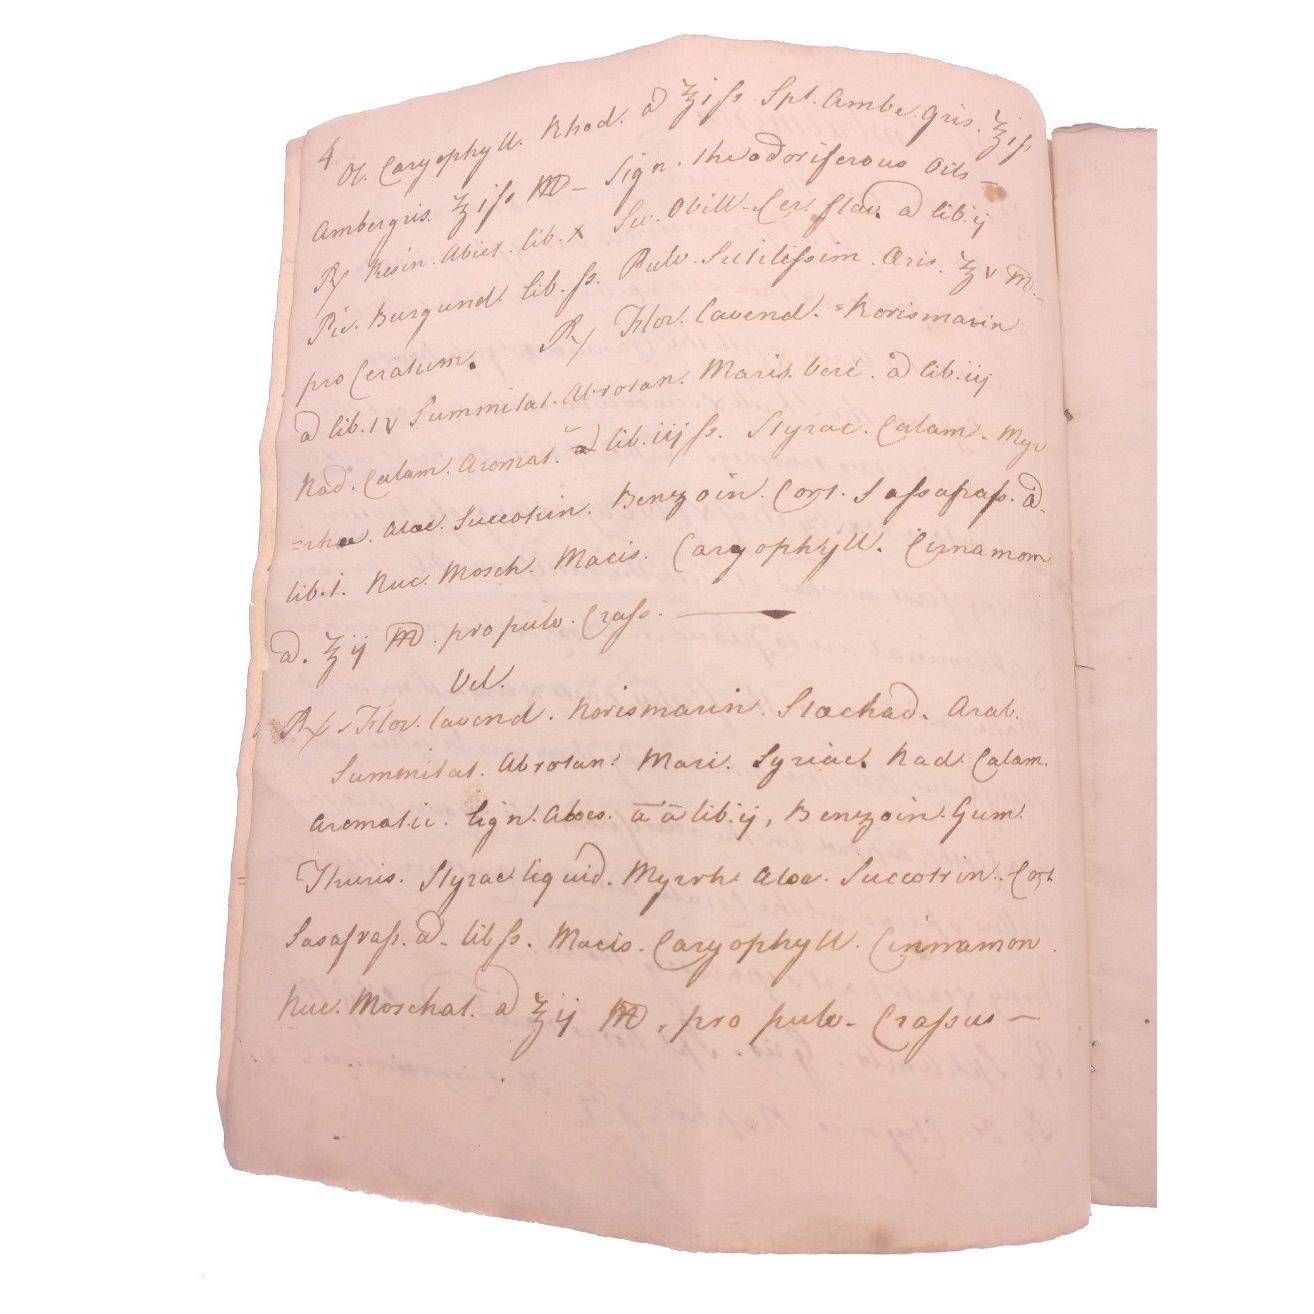 4
Ol. Caryophyll. Rhod. a ℥iſs Spt. Ambe. Gris. ℥iſs
Ambergris. ℥iſs M – Sign. the odoriferous Oils –
℞ Resin. Abiet. lib. x Sev. Ovill – Cer. flav. a lib. ij
Pic. Burgund. lib. ſs. Pulv. Sutilissim. Æris. ℥v M. –
pro Ceratum. ℞ Flor. Lavend. = Rorismarin
a lib. iv Summitat. Abrotan. Maris. veré. a lib. iij
Rad. Calam. Aromat. a lib. iijſs. Styrac. Calam. Myr
=rhæ. Aloe. Succotrin. Benzoin. Cort. Saſsafraſs. a.
lib. i. Nuc. Mosch. Macis. Caryophyll. Cinnamom
a. ℥ij M. pro pulv. Craſs.
Vel.
℞ Flor. Lavend. Rorismarin. Stæchad. Arab.
Summitat. Abrotan. Mari. Syriac. Rad. Calam.
Aromatic. Lign. Aloes. ā ā lib. ij, Benzoin. Gum.
Thuris. Styrac liquid. Myrrh. Aloe. Succotrin. Cort
Sasafraſs. a. lib ſs. Macis. Caryophyll. Cinnamon.
Nuc. Moschat. a ℥ij M. pro pulv – Craſsus –